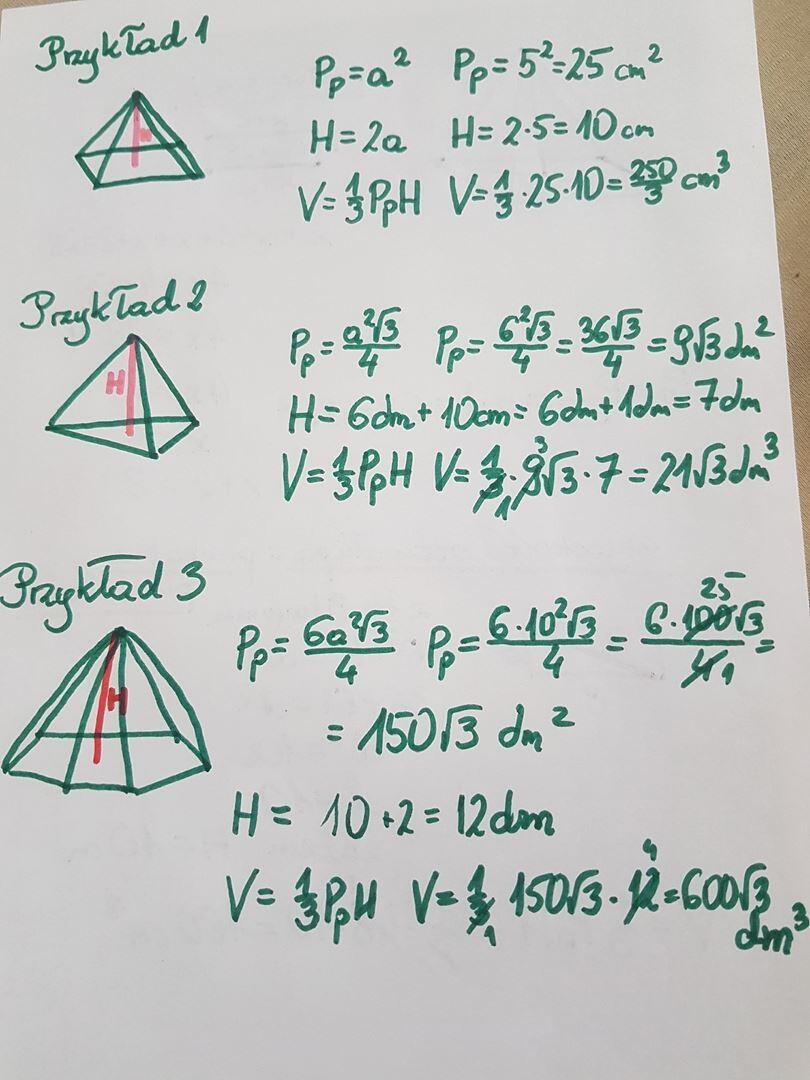 Przykład 1
H
Pp = a² Pp = 5² = 25 cm²
H = 2a H = 2·5 = 10 cm
V = 1/3 PpH V = 1/3 · 25 · 10 = 250/3 cm³
Przykład 2
H
Pp = a²√3/4 Pp = 6²√3/4 = 36√3/4 = 9√3 dm²
H = 6dm + 10cm = 6dm + 1dm = 7dm
V = 1/3 PpH V = 1/3 1 · 9 3 √3 · 7 = 21√3 dm³
Przykład 3
H
Pp = 6a²√3/4 Pp = 6·10²√3/4 = 6·100 25 √3/4 1 =
= 150√3 dm²
H = 10 + 2 = 12dm
V = 1/3 PpH V = 1/3 1 150√3 · 12 4 = 600√3
dm³